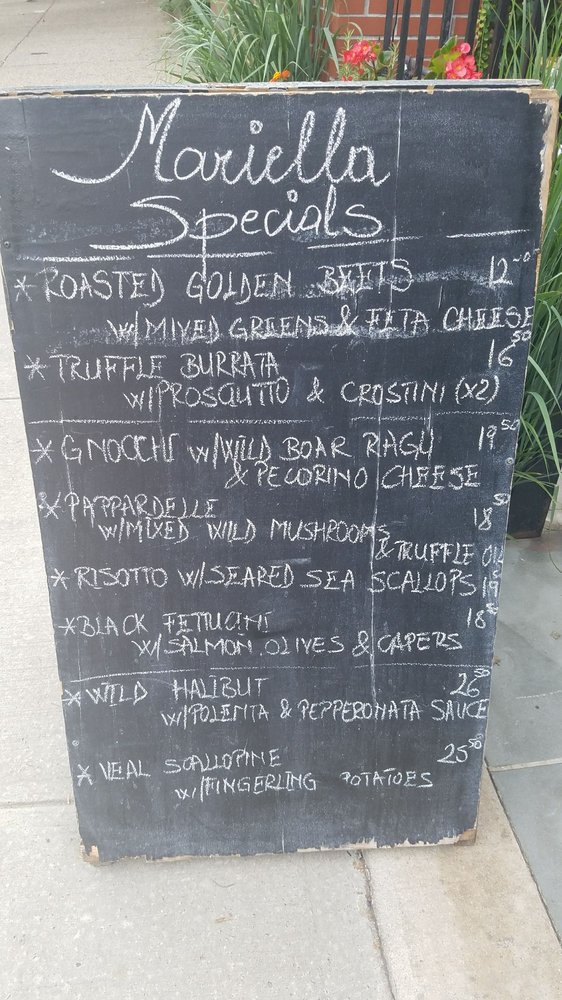 Mariella
Specials
* ROASTED GOLDEN BEETS 12
w/MIXED GREENS & FETA CHEESE
* TRUFFLE BURRATA 16 50
w/PROSCIUTTO & CROSTINI (x2)
* GNOCCHI w/WILD BOAR RAGU 19 50
& PECORINO CHEESE
* PAPPARDELLE 18 50
w/MIXED WILD MUSHROOMS
& TRUFFLE OIL
* RISOTTO w/SEARED SEA SCALLOPS
* BLACK FETTUCINI 18
w/SALMON, OLIVES & CAPERS
* WILD HALIBUT 26 50
w/POLENTA & PEPPERONATA SAUCE
* VEAL SCALLOPINE 25 50
w/FINGERLING POTATOES